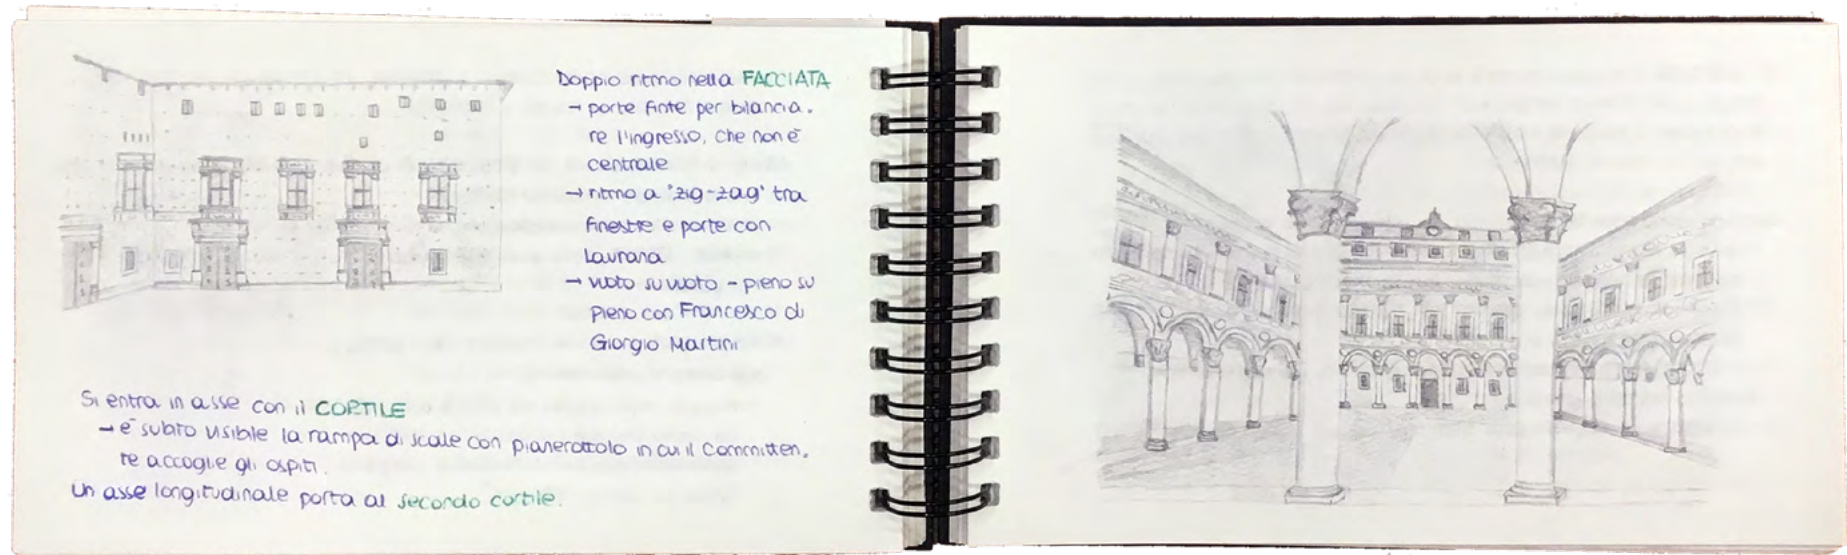 Doppio ritmo nella FACCIATA
→ porte finte per bilancia-
re l'ingresso, che non è
centrale
→ ritmo a 'zig-zag' tra
finestre e porte con
Laurana
→ vuoto su vuoto - pieno su
pieno con Francesco di
Giorgio Martini
Si entra in asse con il CORTILE
→ è subito visibile la rampa di scale con pianerottolo in cui il committen-
te accoglie gli ospiti.
Un asse longitudinale porta al secondo cortile.